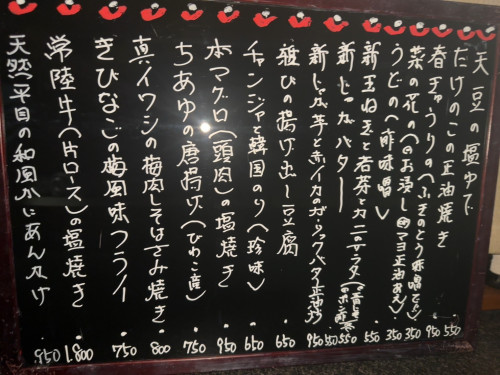 天豆の塩ゆで 550
たけのこの正油焼き 950
春きゅうりの(ふきのとう味噌で) 350
菜の花の(お浸し マヨ正油あえ) 350
うどの(酢味噌) 550
新玉ねぎと若芽とカニのサラダ 550
新じゃがバター 550
新じゃが芋と赤イカのガーリックバタ正油炒 950
揚げ出し豆腐 650
チャンジャと韓国のり(珍味) 650
本マグロ(頭肉)の塩焼き 950
ちあゆの唐揚げ(びわこ産) 750
真イワシの梅肉しそはさみ焼き 800
きびなごの梅風味フライ 750
常陸牛(片ロース)の塩焼き 1,800
天然平目の和風かにあんかけ 950